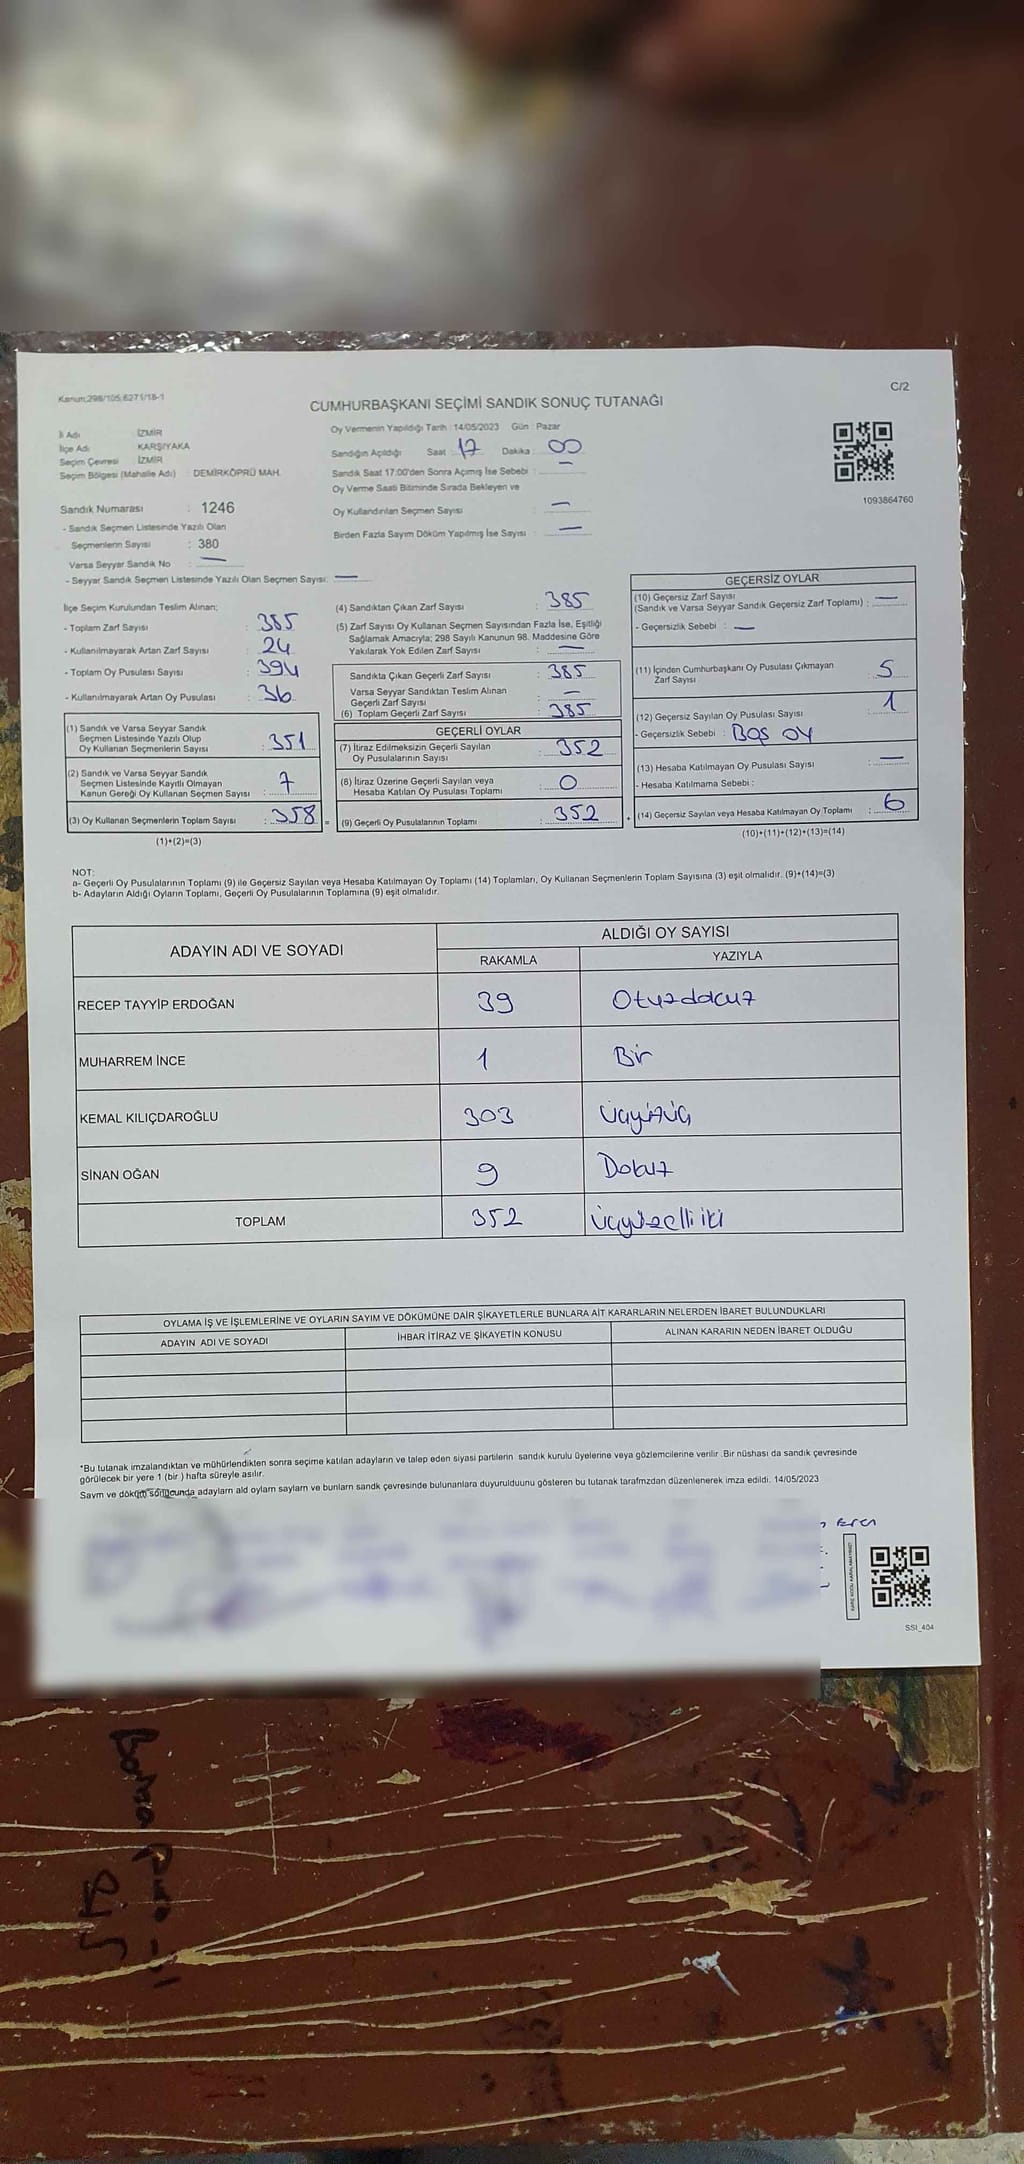 Kanun;298/105;6271/18-1
C/2
CUMHURBAŞKANI SEÇİMİ SANDIK SONUÇ TUTANAĞI
İl Adı : İZMİR
İlçe Adı : KARŞIYAKA
Seçim Çevresi : İZMİR
Seçim Bölgesi (Mahalle Adı) : DEMİRKÖPRÜ MAH.
Sandık Numarası : 1246
- Sandık Seçmen Listesinde Yazılı Olan
Seçmenlerin Sayısı : 380
Varsa Seyyar Sandık No : —
- Seyyar Sandık Seçmen Listesinde Yazılı Olan Seçmen Sayısı: —
Oy Vermenin Yapıldığı Tarih : 14/05/2023 Gün : Pazar
Sandığın Açıldığı Saat : 17 Dakika : 00
Sandık Saat 17:00'den Sonra Açımış İse Sebebi : —
Oy Verme Saati Bitiminde Sırada Bekleyen ve
Oy Kullandırılan Seçmen Sayısı : —
Birden Fazla Sayım Döküm Yapılmış İse Sayısı : —
1093864760
İlçe Seçim Kurulundan Teslim Alınan;
- Toplam Zarf Sayısı : 385
- Kullanılmayarak Artan Zarf Sayısı : 24
- Toplam Oy Pusulası Sayısı : 394
- Kullanılmayarak Artan Oy Pusulası : 36
(1) Sandık ve Varsa Seyyar Sandık
Seçmen Listesinde Yazılı Olup
Oy Kullanan Seçmenlerin Sayısı : 351
(2) Sandık ve Varsa Seyyar Sandık
Seçmen Listesinde Kayıtlı Olmayan
Kanun Gereği Oy Kullanan Seçmen Sayısı : 7
(3) Oy Kullanan Seçmenlerin Toplam Sayısı : 358
(1)+(2)=(3)
(4) Sandıktan Çıkan Zarf Sayısı : 385
(5) Zarf Sayısı Oy Kullanan Seçmen Sayısından Fazla İse, Eşitliği
Sağlamak Amacıyla; 298 Sayılı Kanunun 98. Maddesine Göre
Yakılarak Yok Edilen Zarf Sayısı : —
Sandıkta Çıkan Geçerli Zarf Sayısı : 385
Varsa Seyyar Sandıktan Teslim Alınan
Geçerli Zarf Sayısı : —
(6) Toplam Geçerli Zarf Sayısı : 385
GEÇERLİ OYLAR
(7) İtiraz Edilmeksizin Geçerli Sayılan
Oy Pusulalarının Sayısı : 352
(8) İtiraz Üzerine Geçerli Sayılan veya
Hesaba Katılan Oy Pusulası Toplamı : 0
= (9) Geçerli Oy Pusulalarının Toplamı : 352 +
GEÇERSİZ OYLAR
(10) Geçersiz Zarf Sayısı
(Sandık ve Varsa Seyyar Sandık Geçersiz Zarf Toplamı) : —
- Geçersizlik Sebebi : —
(11) İçinden Cumhurbaşkanı Oy Pusulası Çıkmayan
Zarf Sayısı : 5
(12) Geçersiz Sayılan Oy Pusulası Sayısı : 1
- Geçersizlik Sebebi : BOŞ OY
(13) Hesaba Katılmayan Oy Pusulası Sayısı : —
- Hesaba Katılmama Sebebi :
(14) Geçersiz Sayılan veya Hesaba Katılmayan Oy Toplamı : 6
(10)+(11)+(12)+(13)=(14)
NOT:
a- Geçerli Oy Pusulalarının Toplamı (9) ile Geçersiz Sayılan veya Hesaba Katılmayan Oy Toplamı (14) Toplamları, Oy Kullanan Seçmenlerin Toplam Sayısına (3) eşit olmalıdır. (9)+(14)=(3)
b- Adayların Aldığı Oyların Toplamı, Geçerli Oy Pusulalarının Toplamına (9) eşit olmalıdır.
ADAYIN ADI VE SOYADI
ALDIĞI OY SAYISI
RAKAMLA YAZIYLA
RECEP TAYYİP ERDOĞAN 39 Otuzdokuz
MUHARREM İNCE 1 Bir
KEMAL KILIÇDAROĞLU 303 Üçyüzüç
SİNAN OĞAN 9 Dokuz
TOPLAM 352 Üçyüzelli iki
OYLAMA İŞ VE İŞLEMLERİNE VE OYLARIN SAYIM VE DÖKÜMÜNE DAİR ŞİKAYETLERLE BUNLARA AİT KARARLARIN NELERDEN İBARET BULUNDUKLARI
ADAYIN ADI VE SOYADI İHBAR İTİRAZ VE ŞİKAYETİN KONUSU ALINAN KARARIN NEDEN İBARET OLDUĞU
*Bu tutanak imzalandıktan ve mühürlendikten sonra seçime katılan adayların ve talep eden siyasi partilerin sandık kurulu üyelerine veya gözlemcilerine verilir .Bir nüshası da sandık çevresinde
görülecek bir yere 1 (bir ) hafta süreyle asılır.
Sayım ve döküm sonucunda adayların ald oyların sayları ve bunların sandk çevresinde bulunanlara duyurulduunu gösteren bu tutanak tarafmzdan düzenlenerek imza edildi. 14/05/2023
SSI_404